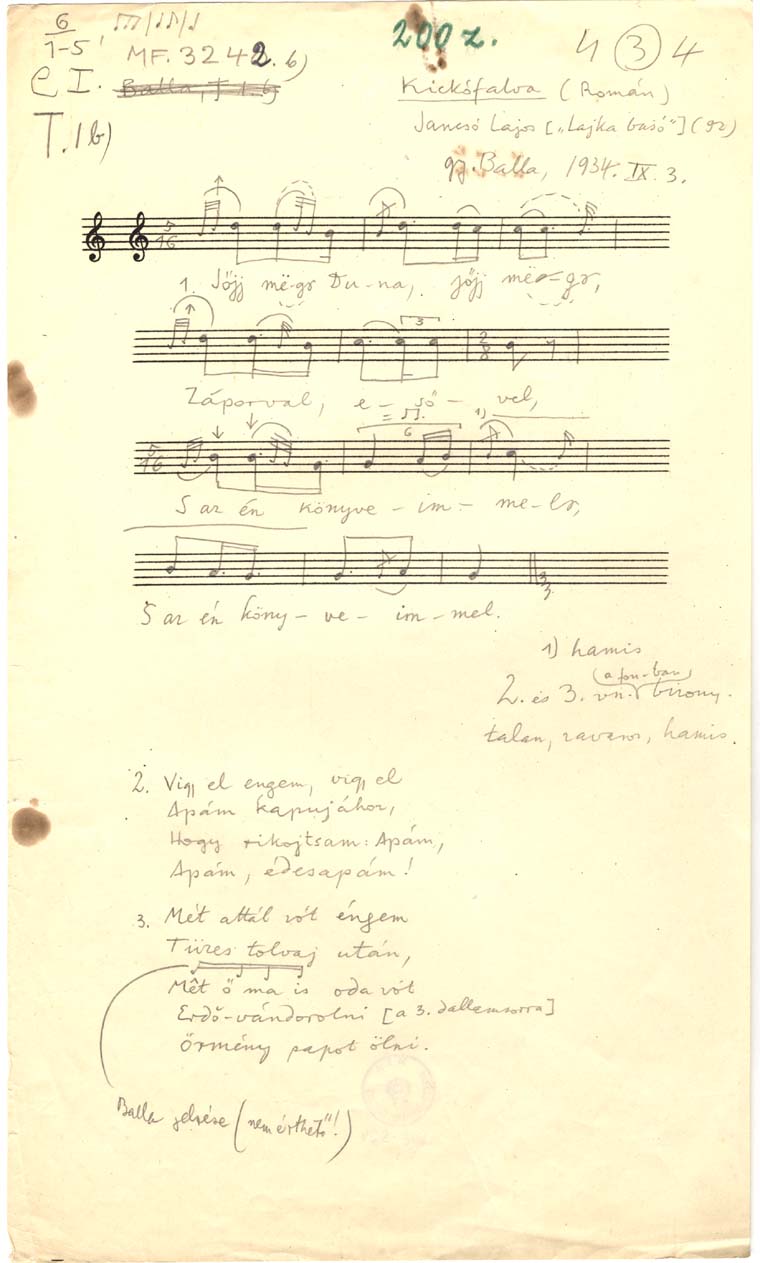 6
1-5
MF. 3242. b)
200 z.
4 (3) 4
C I.
Balla, I 1. b)
Kickófalva (Román)
T. 1b)
Jancsó Lajos ["Lajka básó"] (92)
gy. Balla, 1934. IX. 3.
5
16
1. Jőjj më-gr Du-na, jőjj më-gr,
3
2
8
Záporval, e-ső-vel,
5
16
6
1)
S az én könyve-im-me-lr,
S az én köny-ve-im-mel.
3
3
1) hamis
(a fon-ban)
2. és 3. vn. bizony-
talan, zavaros, hamis.
2. Vigy el engem, vigy el
Apám kapujához,
Hogy rikojtsam: Apám,
Apám, édesapám!
3. Mét attál vót éngem
Tüzes tolvaj után,
Mêt ő ma is oda vót
Erdő-vándorolni [a 3. dallamsorra]
Örmény papot ölni.
Balla jelzése (nem érthető!)